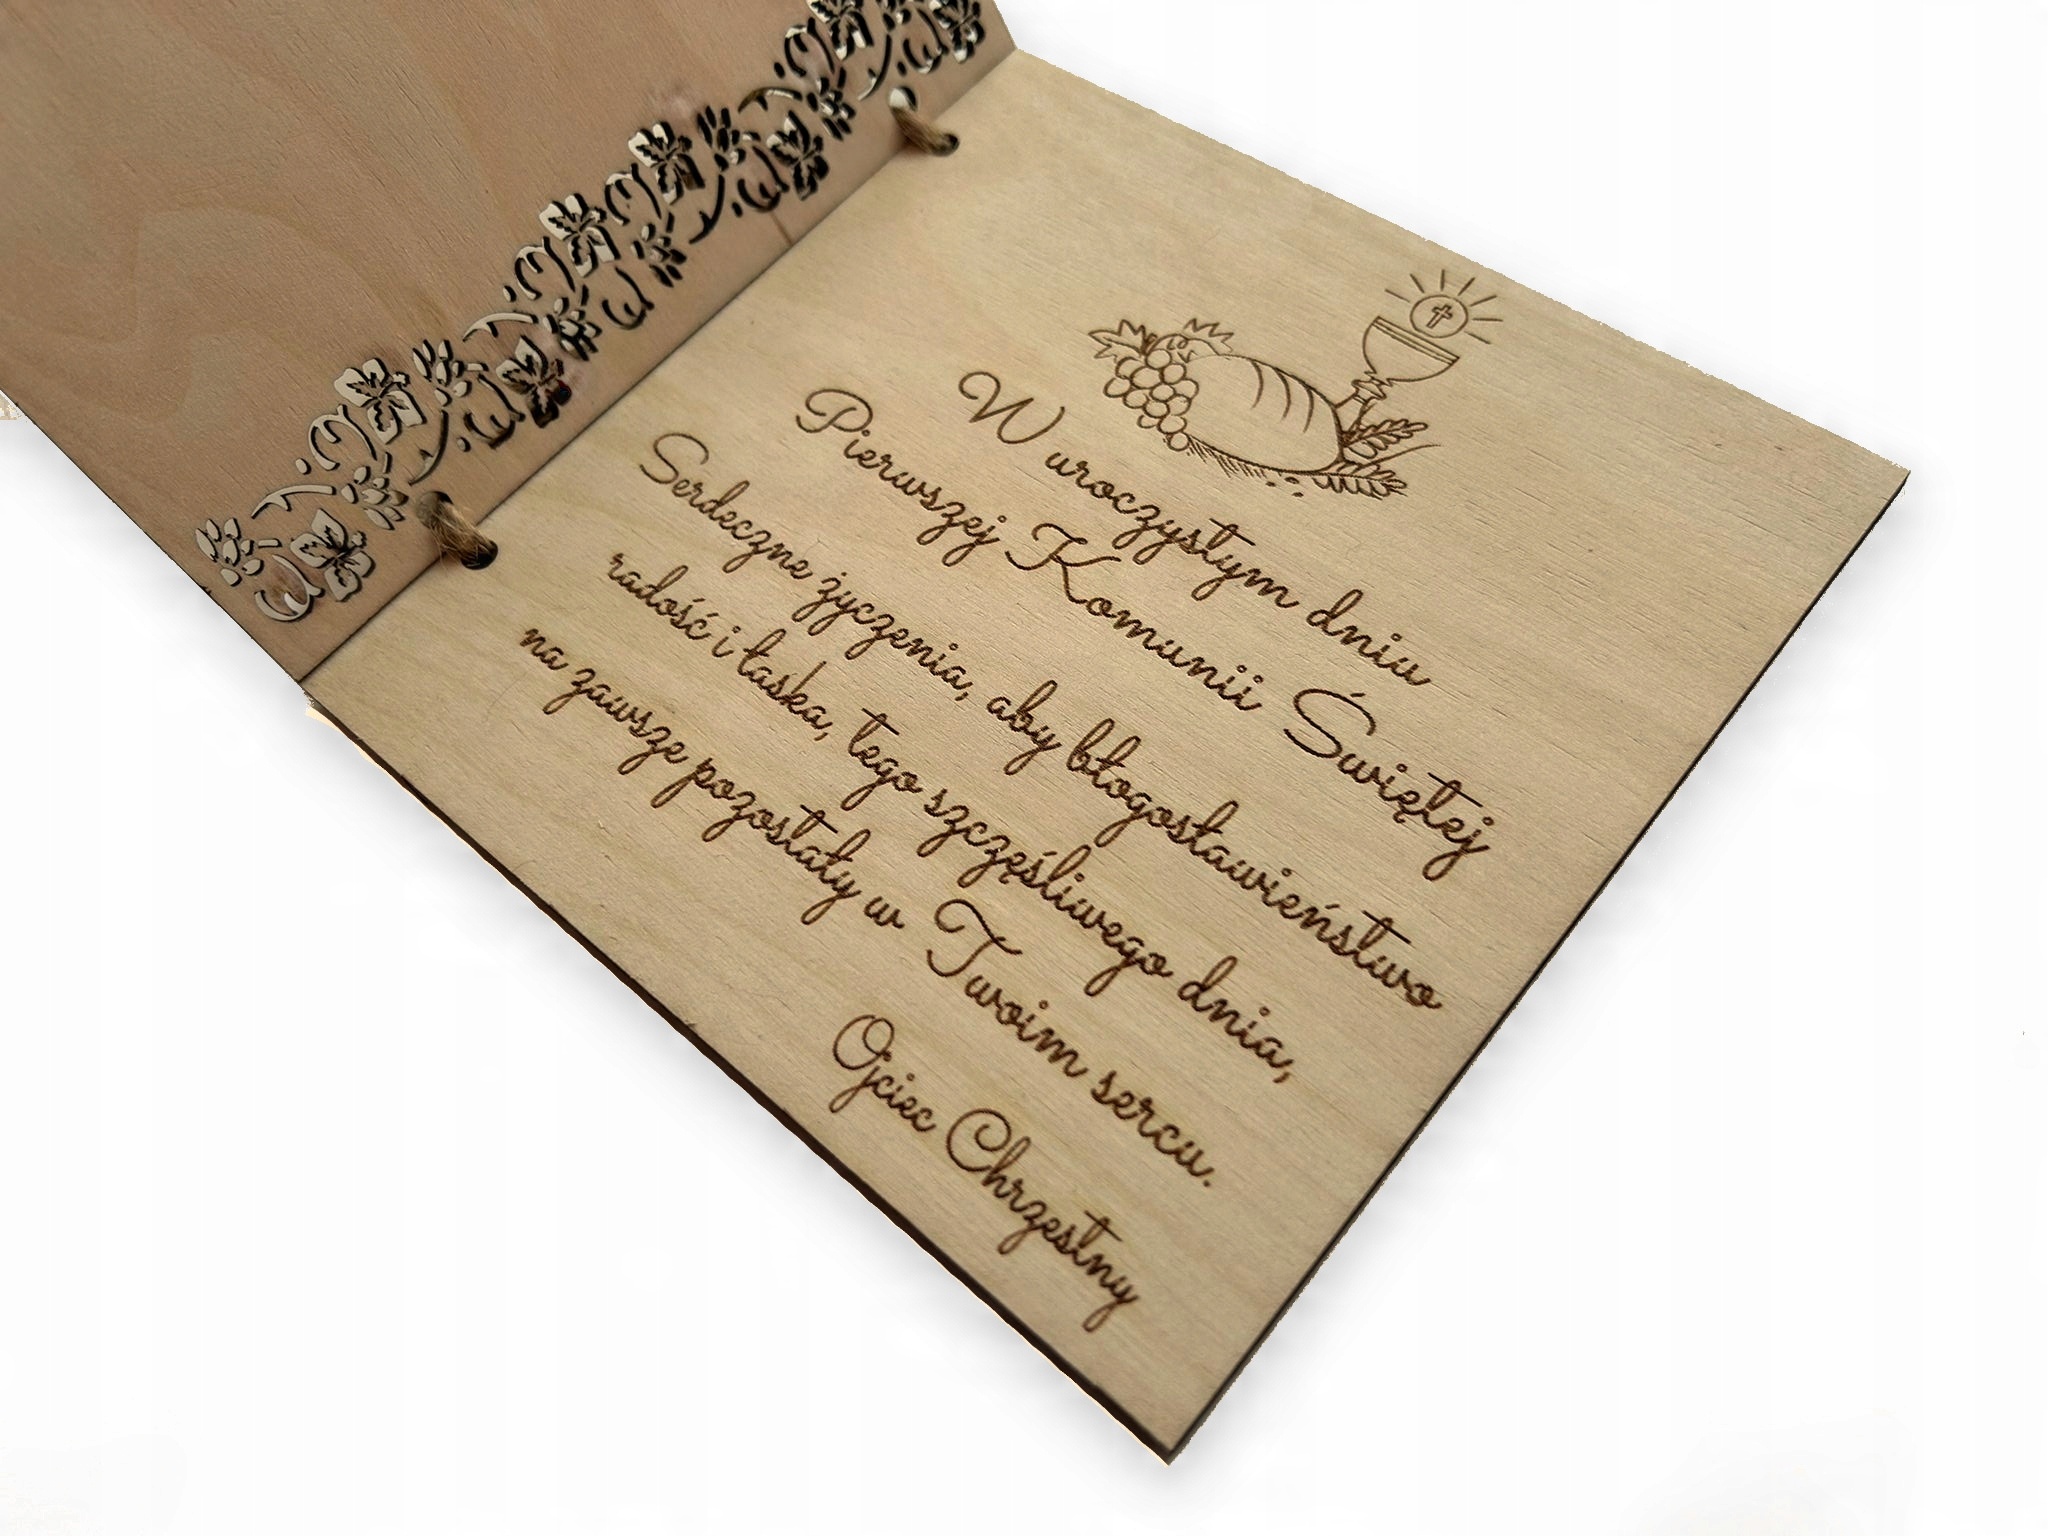 W uroczystym dniu
Pierwszej Komunii Świętej
Serdeczne życzenia, aby błogosławieństwo
radość i łaska, tego szczęśliwego dnia,
na zawsze pozostały w Twoim sercu.
Ojciec Chrzestny